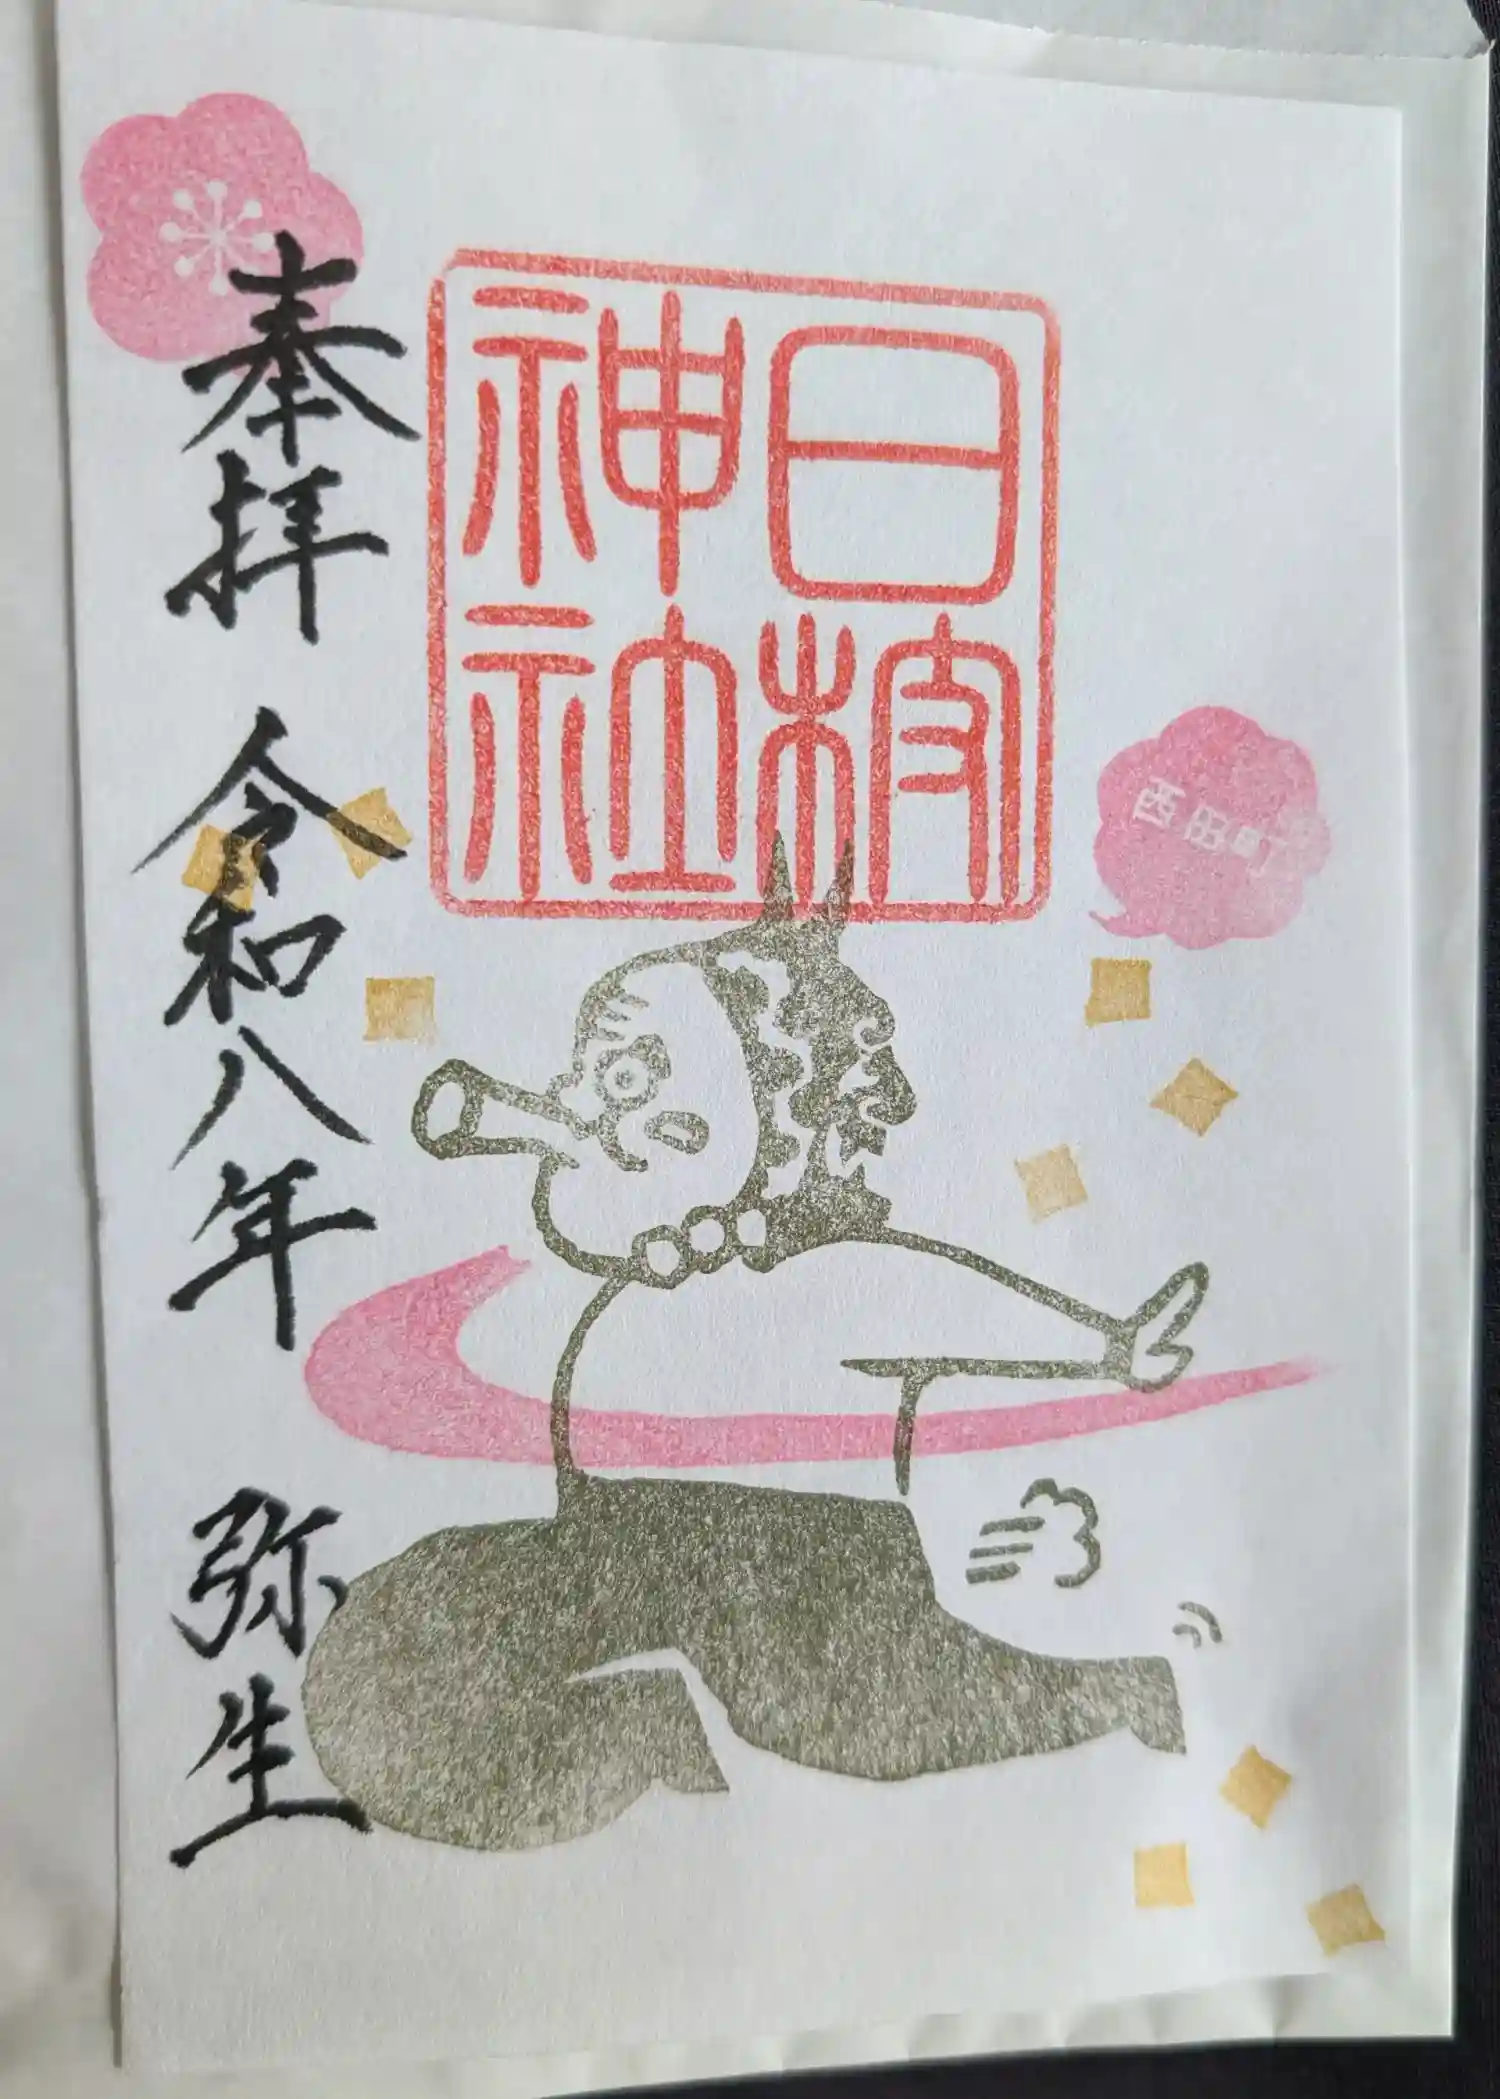 日枝
神社
西田町
奉拝 令和八年 弥生